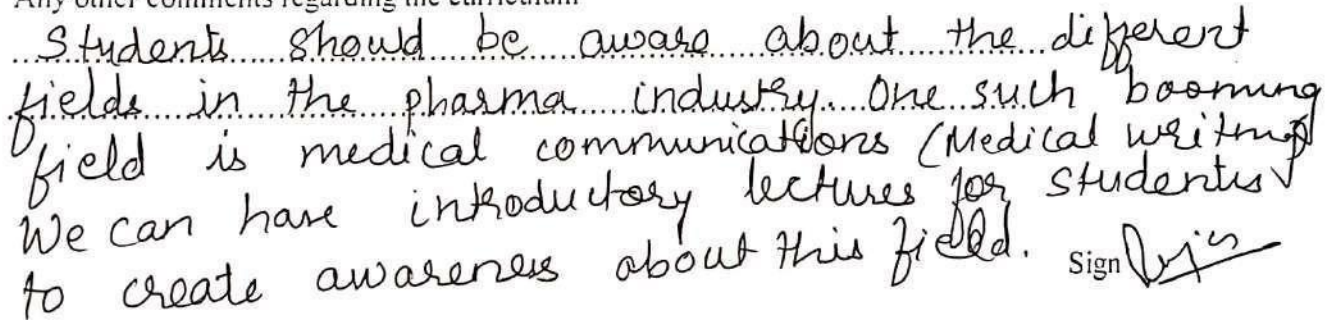 Any other comments regarding the curriculum
Students should be aware about the different
fields in the pharma industry. One such booming
field is medical communications (Medical writing)
We can have introductory lectures for students
to create awareness about this field. Sign